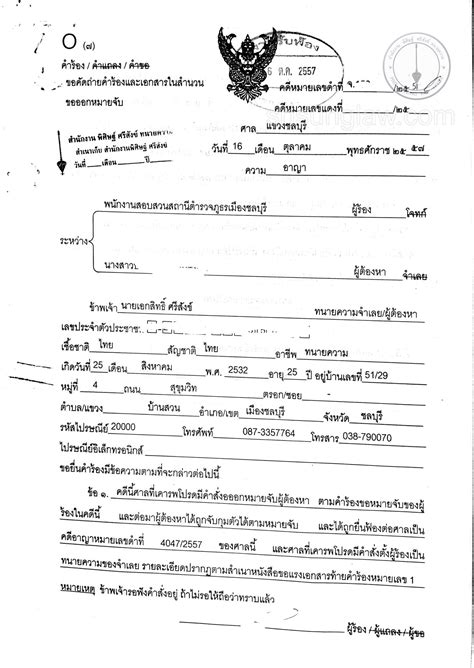 (๗)
คำร้อง / คำแถลง / คำขอ
ขอคัดถ่ายคำร้องและเอกสารในสำนวน
ขอออกหมายจับ
รับฟ้อง
ต.ค. 2557
คดีหมายเลขดำที่
/๒๕
คดีหมายเลขแดงที่ /๒๕
ศาล แขวงชลบุรี
สำนักงาน พิศิษฐ์ ศรีสังข์ ทนายความ
สำเนาเก็บ สำนักงานพิศิษฐ์ ศรีสังข์
วันที่ เดือน ปี
วันที่ 16 เดือน ตุลาคม พุทธศักราช ๒๕ ๕๗
ความ อาญา
พนักงานสอบสวนสถานีตำรวจภูธรเมืองชลบุรี ผู้ร้อง โจทก์
ระหว่าง
นางสาว ผู้ต้องหา จำเลย
ข้าพเจ้า นายเอกสิทธิ์ ศรีสังข์ ทนายความจำเลย/ผู้ต้องหา
เลขประจำตัวประชาช
เชื้อชาติ ไทย สัญชาติ ไทย อาชีพ ทนายความ
เกิดวันที่ 25 เดือน สิงหาคม พ.ศ. 2532 อายุ 25 ปี อยู่บ้านเลขที่ 51/29
หมู่ที่ 4 ถนน สุขุมวิท ตรอก/ซอย
ตำบล/แขวง บ้านสวน อำเภอ/เขต เมืองชลบุรี จังหวัด ชลบุรี
รหัสไปรษณีย์ 20000 โทรศัพท์ 087-3357764 โทรสาร 038-790070
ไปรษณีย์อิเล็กทรอนิกส์
ขอยื่นคำร้องมีข้อความตามที่จะกล่าวต่อไปนี้
ข้อ ๑. คดีนี้ศาลที่เคารพโปรดมีคำสั่งออกหมายจับผู้ต้องหา ตามคำร้องขอหมายจับของผู้
ร้องในคดีนี้ และต่อมาผู้ต้องหาได้ถูกจับกุมตัวได้ตามหมายจับ และได้ถูกยื่นฟ้องต่อศาลเป็น
คดีอาญาหมายเลขดำที่ 4047/2557 ของศาลนี้ และศาลที่เคารพโปรดมีคำสั่งตั้งผู้ร้องเป็น
ทนายความของจำเลย รายละเอียดปรากฏตามสำเนาหนังสือขอแรงเอกสารท้ายคำร้องหมายเลข 1
หมายเหตุ ข้าพเจ้ารอฟังคำสั่งอยู่ ถ้าไม่รอให้ถือว่าทราบแล้ว
ผู้ร้อง / ผู้แถลง / ผู้ขอ